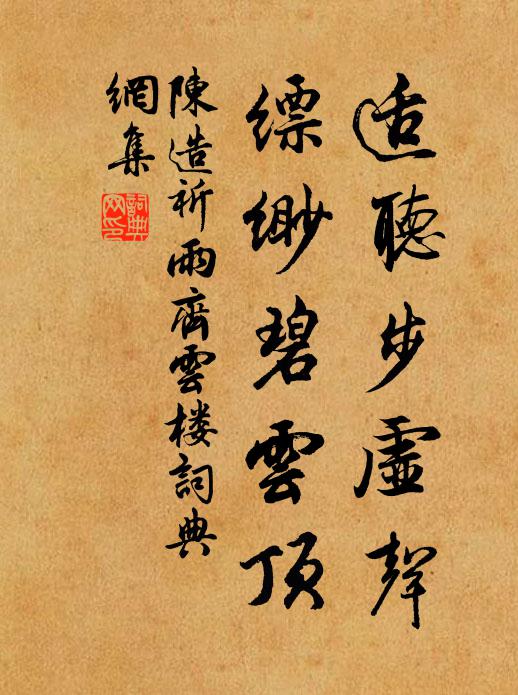 适聽步虛聲
縹緲碧雲頂
陳造祈雨齊雲樓詞典
網集
詞典
网印